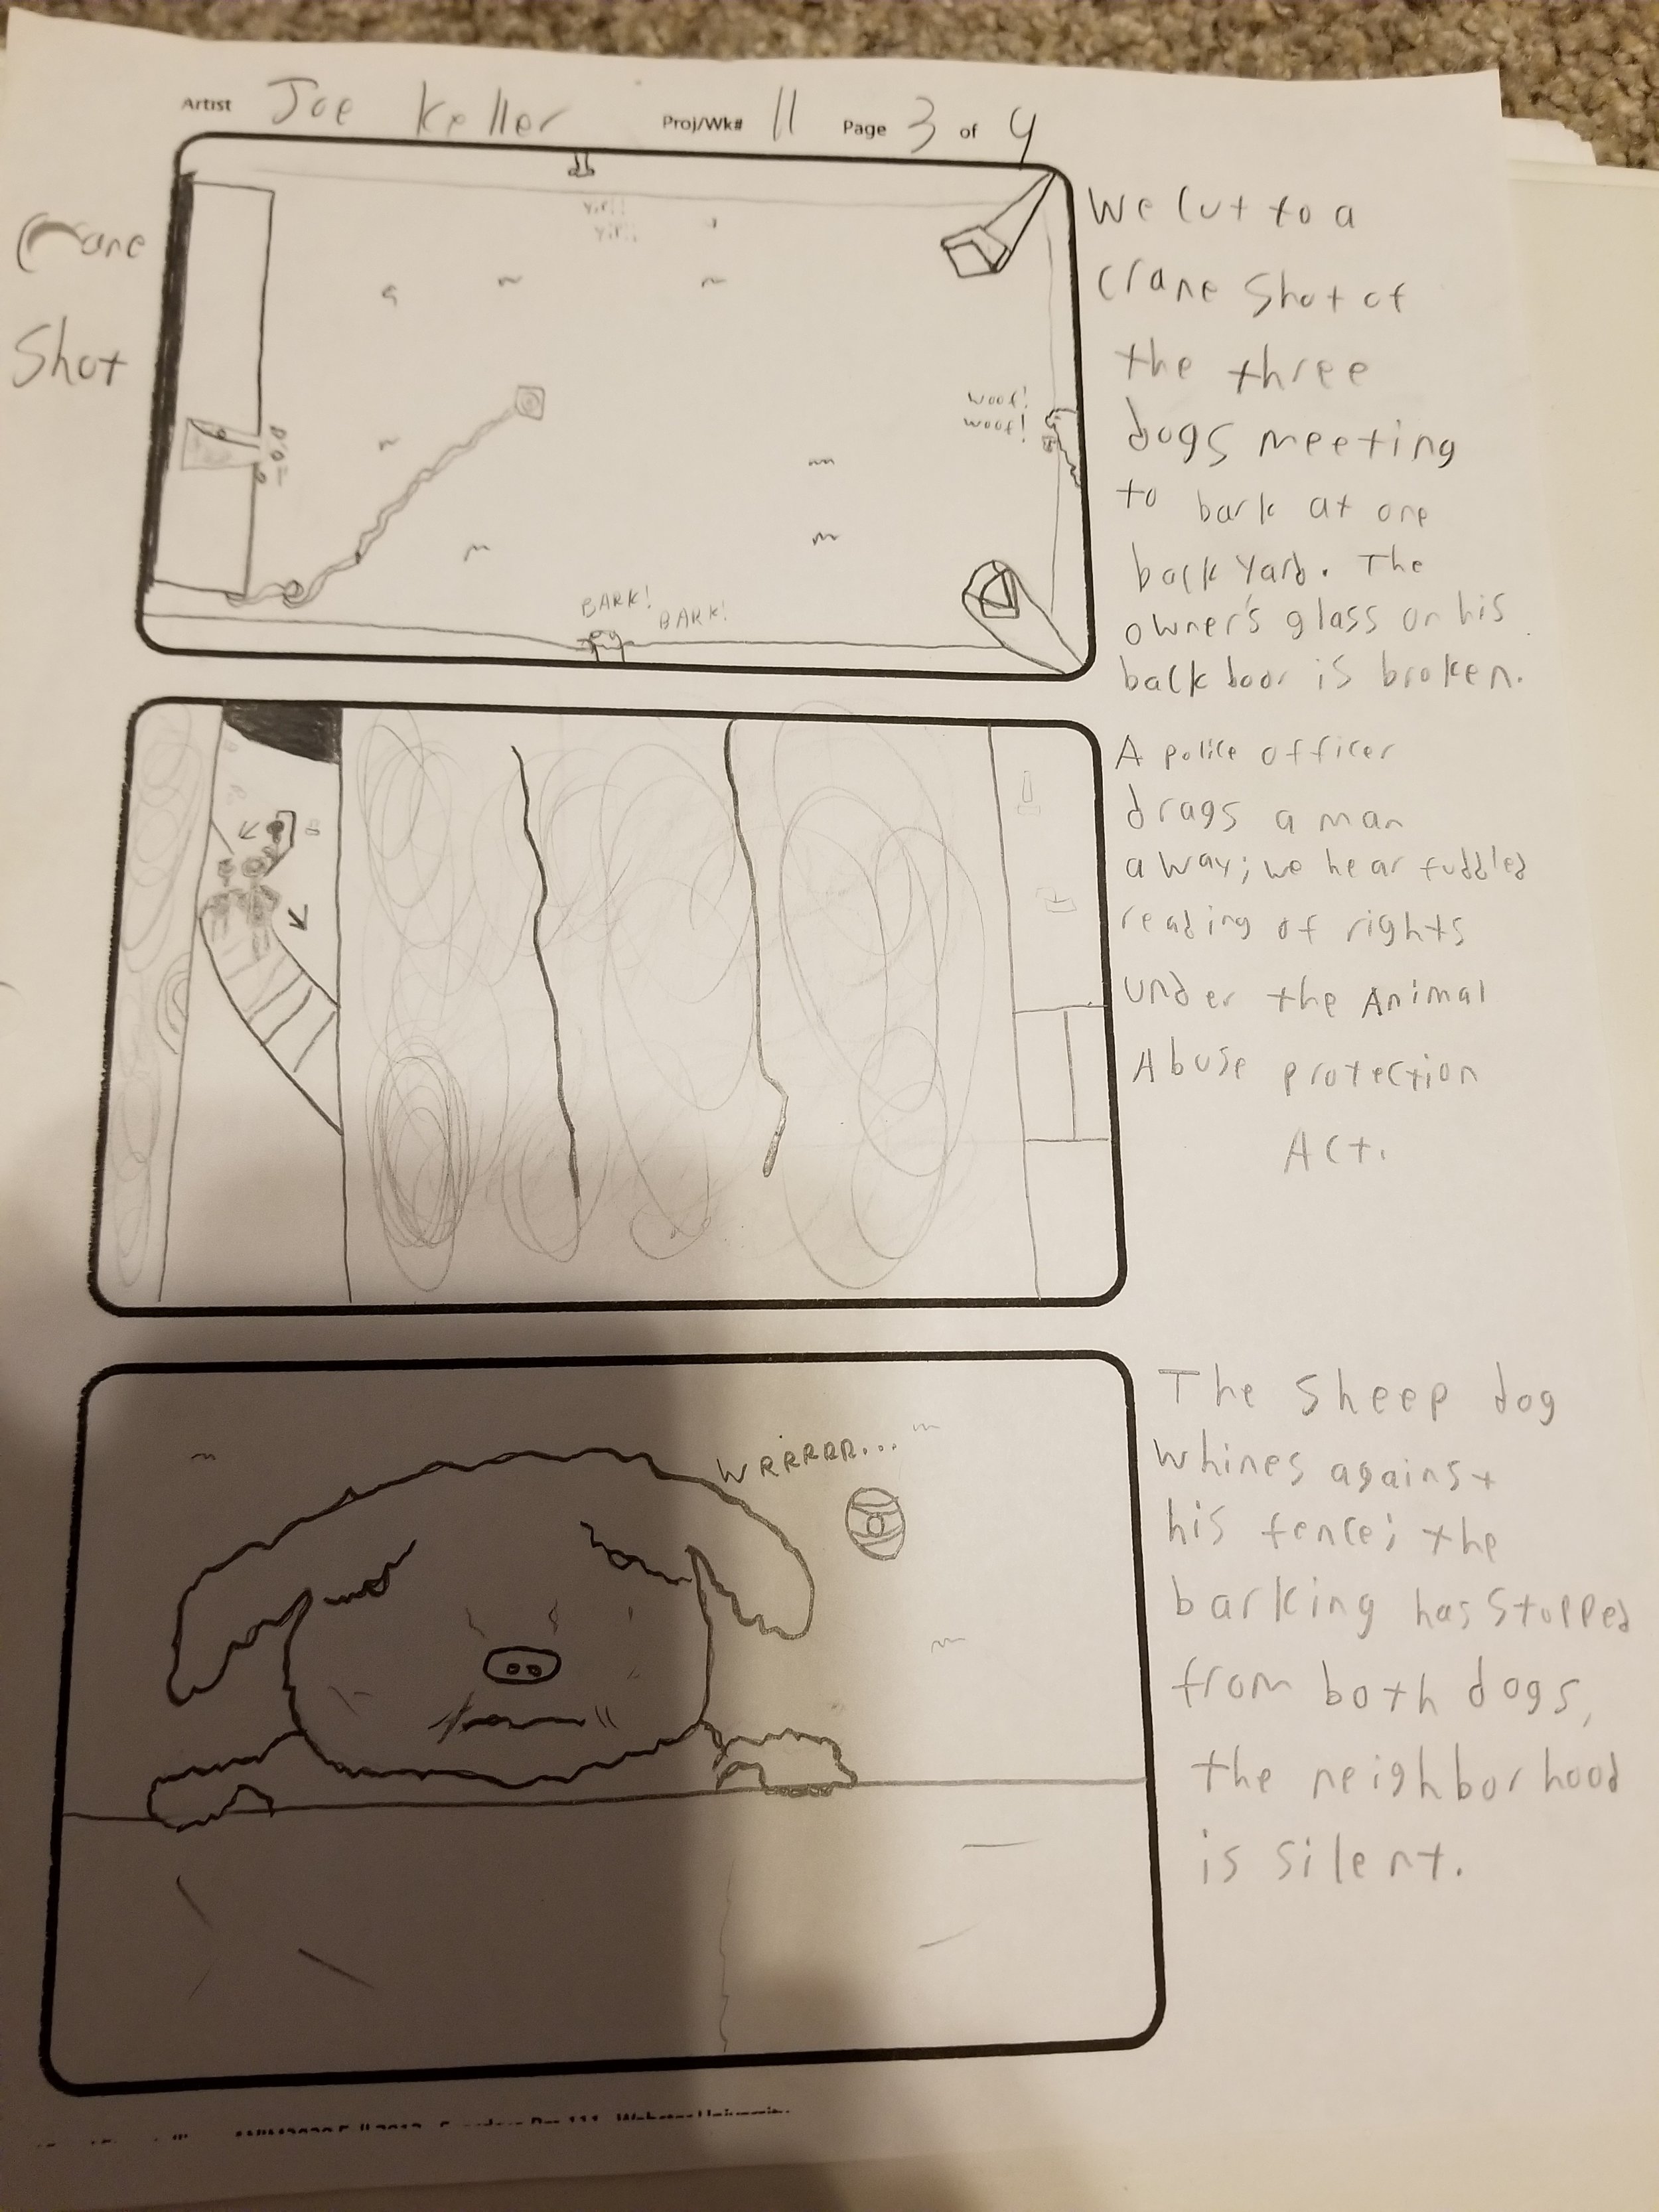 Artist Joe Keller Proj/Wk# 11 Page 3 of 4
Crane
Shot
Yip!
Yip!
woof!
woof!
BARK!
BARK!
We cut to a
crane shot of
the three
dogs meeting
to bark at one
back yard. The
owner's glass on his
back door is broken.
A police officer
drags a man
away; we hear fuddled
reading of rights
under the Animal
Abuse protection
Act.
WRRRRR...
The sheep dog
whines against
his fence; the
barking has stopped
from both dogs,
the neighborhood
is silent.
Webster University